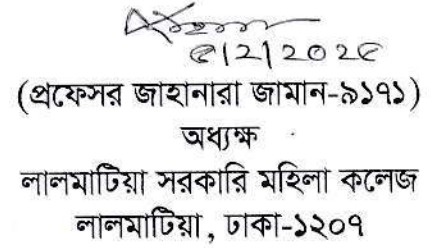 ৫|২|২০২৫
(প্রফেসর জাহানারা জামান-৯১৭১)
অধ্যক্ষ
লালমাটিয়া সরকারি মহিলা কলেজ
লালমাটিয়া, ঢাকা-১২০৭